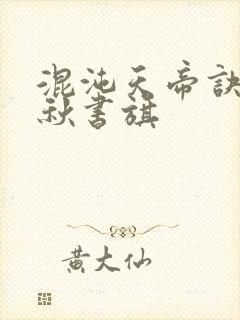 混沌天帝訣
秋書旗
黃大仙